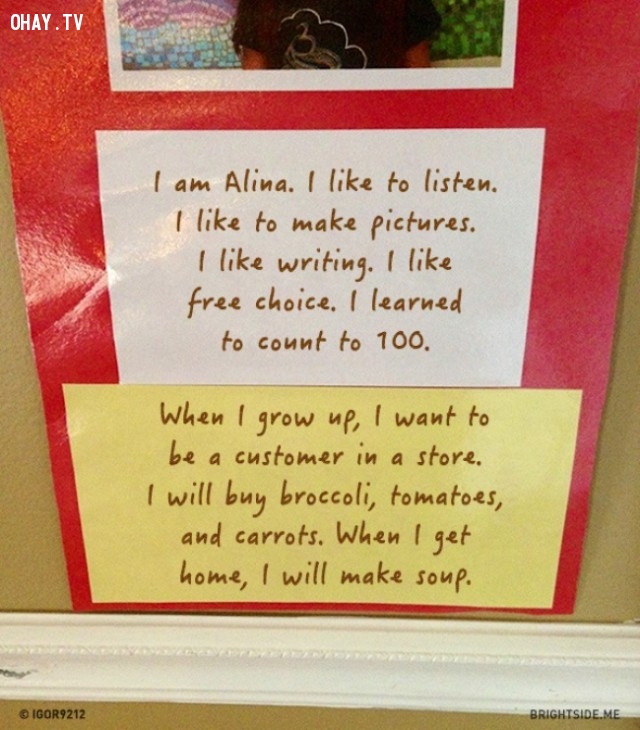 OHAY.TV
I am Alina. I like to listen.
I like to make pictures.
I like writing. I like
free choice. I learned
to count to 100.
When I grow up, I want to
be a customer in a store.
I will buy broccoli, tomatoes,
and carrots. When I get
home, I will make soup.
© IGOR9212
BRIGHTSIDE.ME